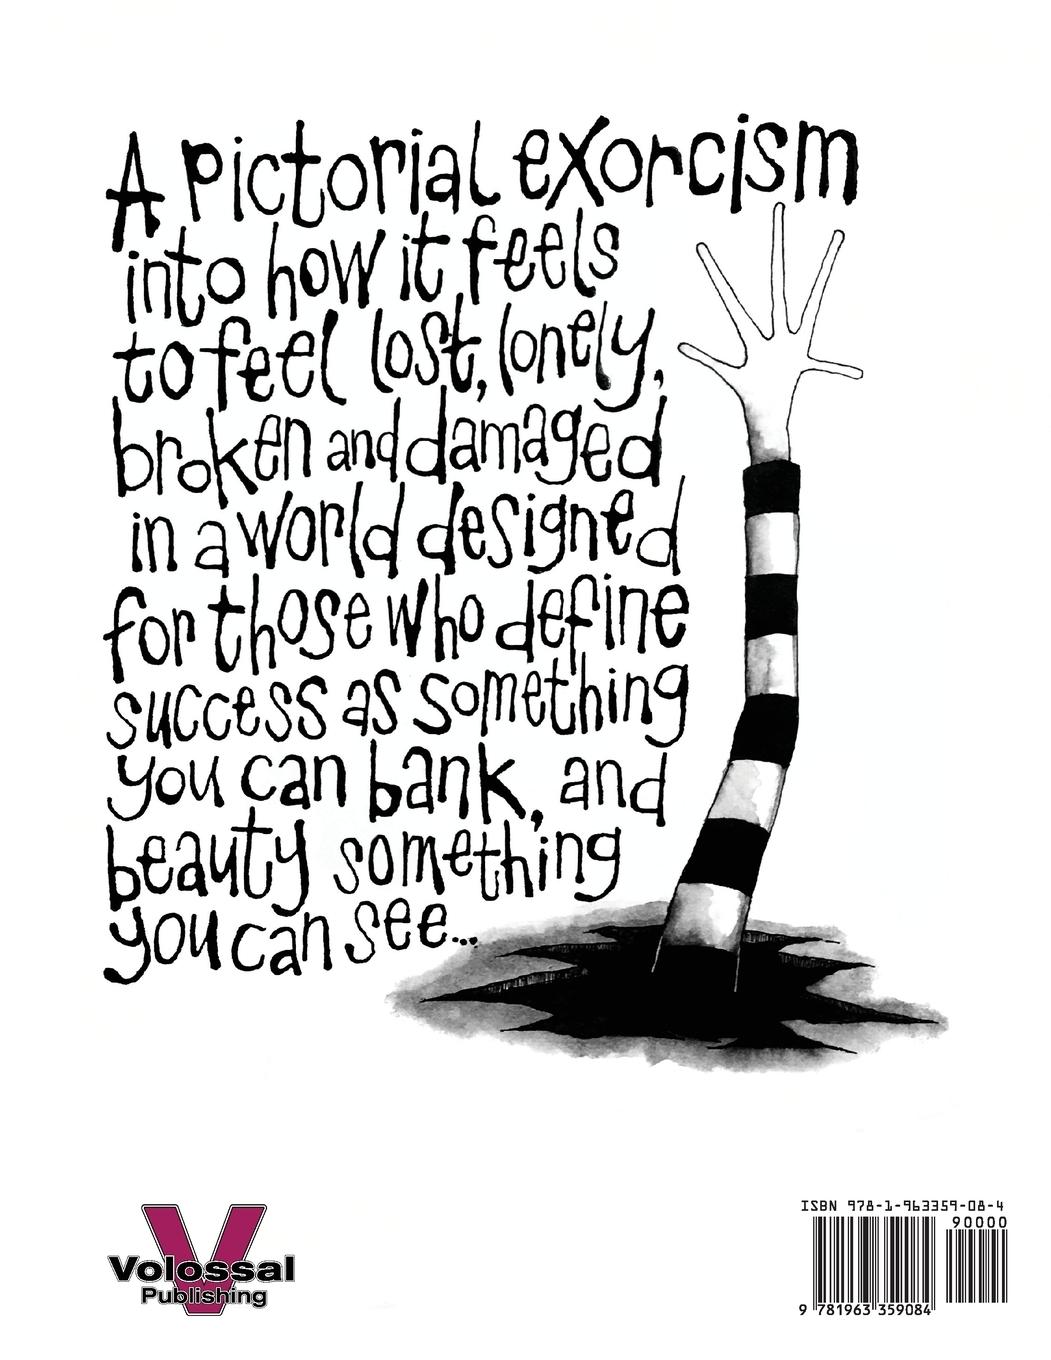 A pictorial exorcism
into how it feels
to feel lost, lonely,
broken and damaged
in a world designed
for those who define
success as something
you can bank, and
beauty something
you can see...
Volossal
Publishing
ISBN 978-1-963359-08-4
90000
9 781963 359084